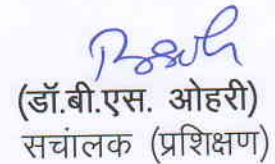 (डॉ.बी.एस. ओहरी)
सचांलक (प्रशिक्षण)